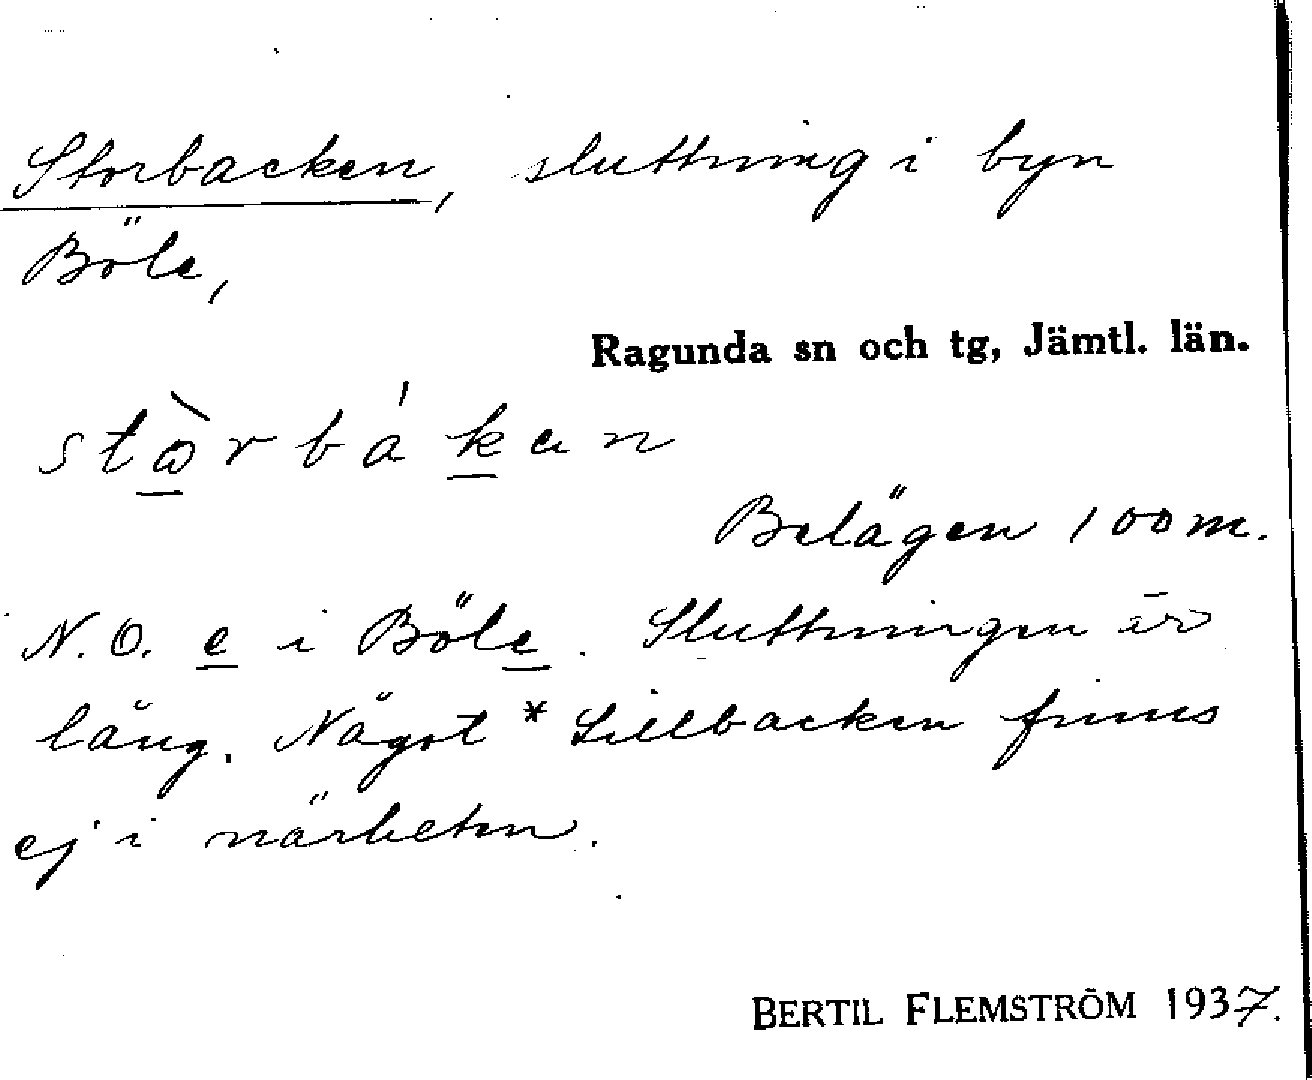 Storbacken, sluttning i byn
Böle,
Ragunda sn och tg, Jämtl. län.
Belägen 100 m.
N.O. e i Böle. Sluttningen är
lång. Något * Lillbacken finns
ej i närheten.
BERTIL FLEMSTRÖM 1937.